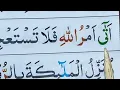 اَتٰۤی اَمْرُ اللّٰهِ فَلَا تَسْتَعْ
یُنَزِّلُ الْمَلٰٓىِٕكَةَ بِالرُّ